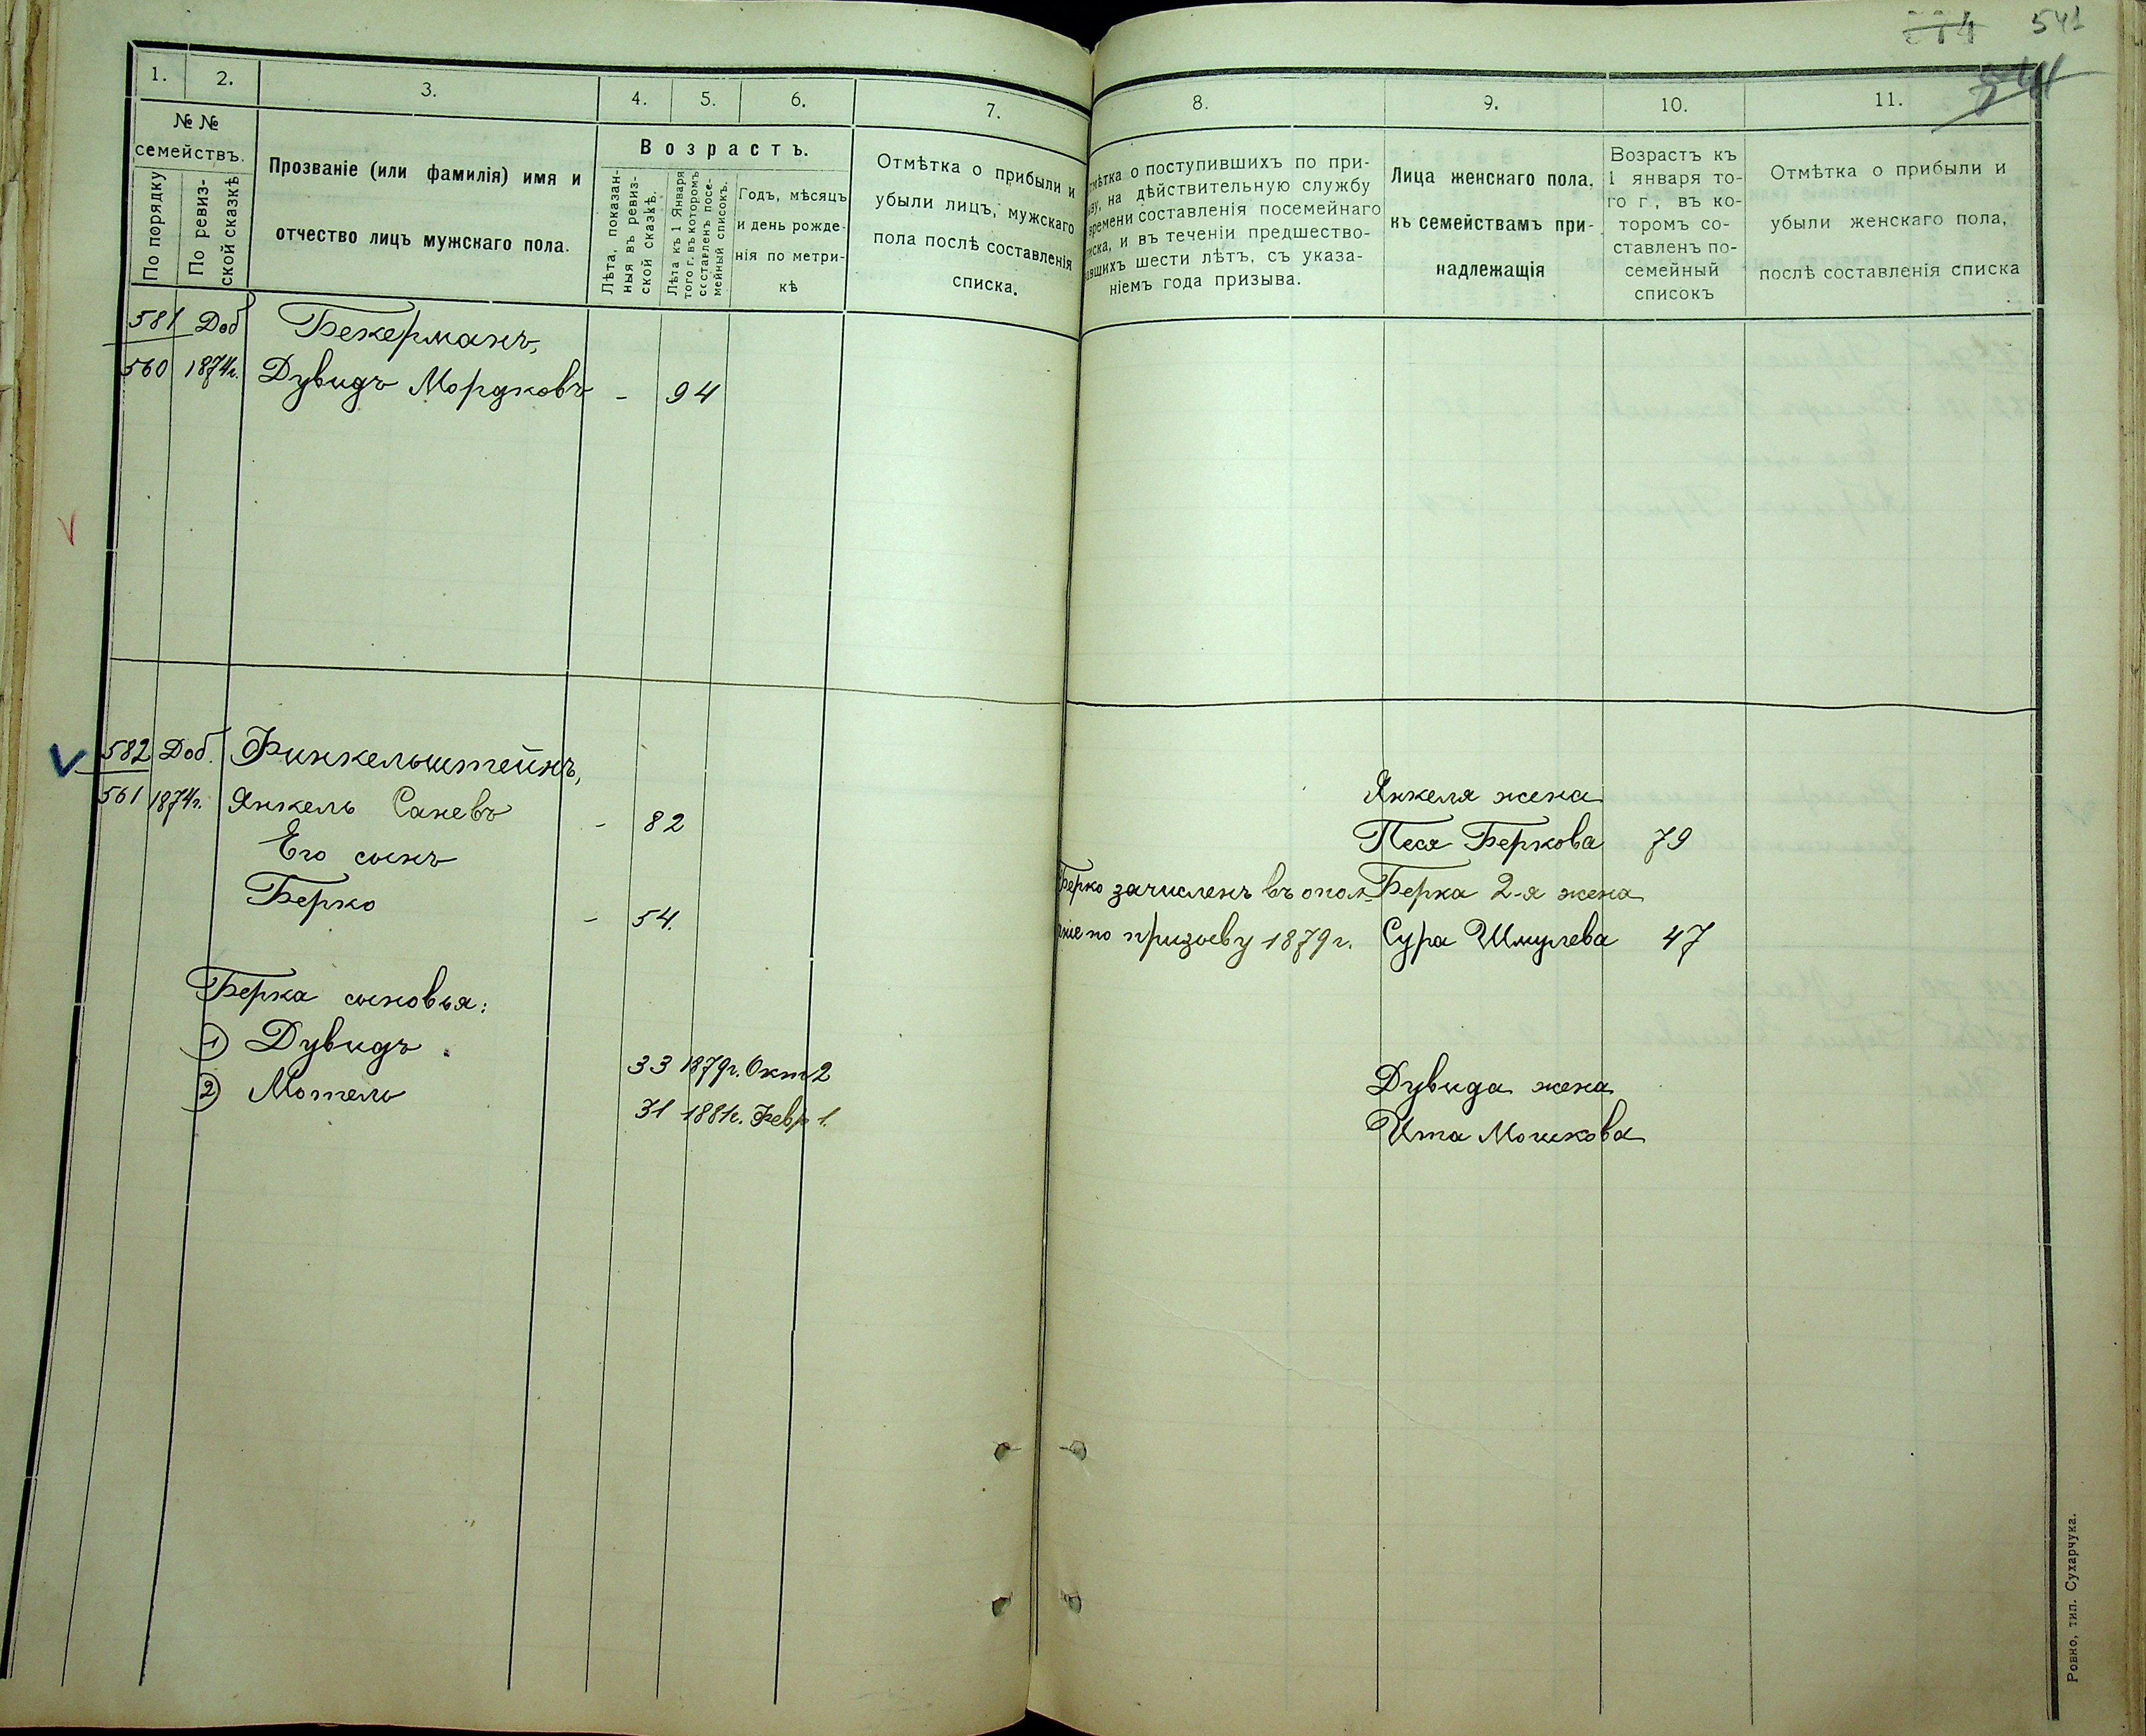 541
1.
2.
3.
4.
5.
6.
7.
8.
9.
10.
11.
№ №
семействъ.
По порядку
По ревиз-
ской сказкѣ
Прозваніе (или фамилія) имя и
отчество лицъ мужскаго пола.
Возрастъ.
Лѣта, показан-
ныя въ ревиз-
ской сказкѣ.
Лѣта къ 1 Января
того г. въ которомъ
составленъ посе-
мейный списокъ.
Годъ, мѣсяцъ
и день рожде-
нія по метри-
кѣ
Отмѣтка о прибыли и
убыли лицъ, мужскаго
пола послѣ составленія
списка.
о поступившихъ по при-
на дѣйствительную службу
времени составленія посемейнаго
и въ теченіи предшество-
вавшихъ шести лѣтъ, съ указа-
ніемъ года призыва.
Лица женскаго пола,
къ семействамъ при-
надлежащія
Возрастъ къ
1 января то-
го г., въ ко-
торомъ со-
ставленъ по-
семейный
списокъ
Отмѣтка о прибыли и
убыли женскаго пола,
послѣ составленія списка
581 Доб Бекерманъ,
560 1874г. Дувидъ Мордковъ - 94
582 Доб. Финкельштейнъ,
561 1874г. Янкель Саневъ - 82
Его сынъ
Берко - 54.
Берка сыновья:
1) Дувидъ 33 1879г. Окт 2
2) Мотель 31 1881г. Февр 1.
Янкеля жена
Песя Беркова 79
Берко зачисленъ въ опол- Берка 2-я жена
ченіе по призыву 1879 г. Сура Шмулева 47
Дувида жена
Ита Мошкова
Ровно, тип. Сухарчука.